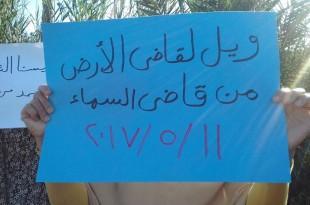 ويل لقاضى الأرض
من قاضى السماء
٢٠١٧/٥/١١